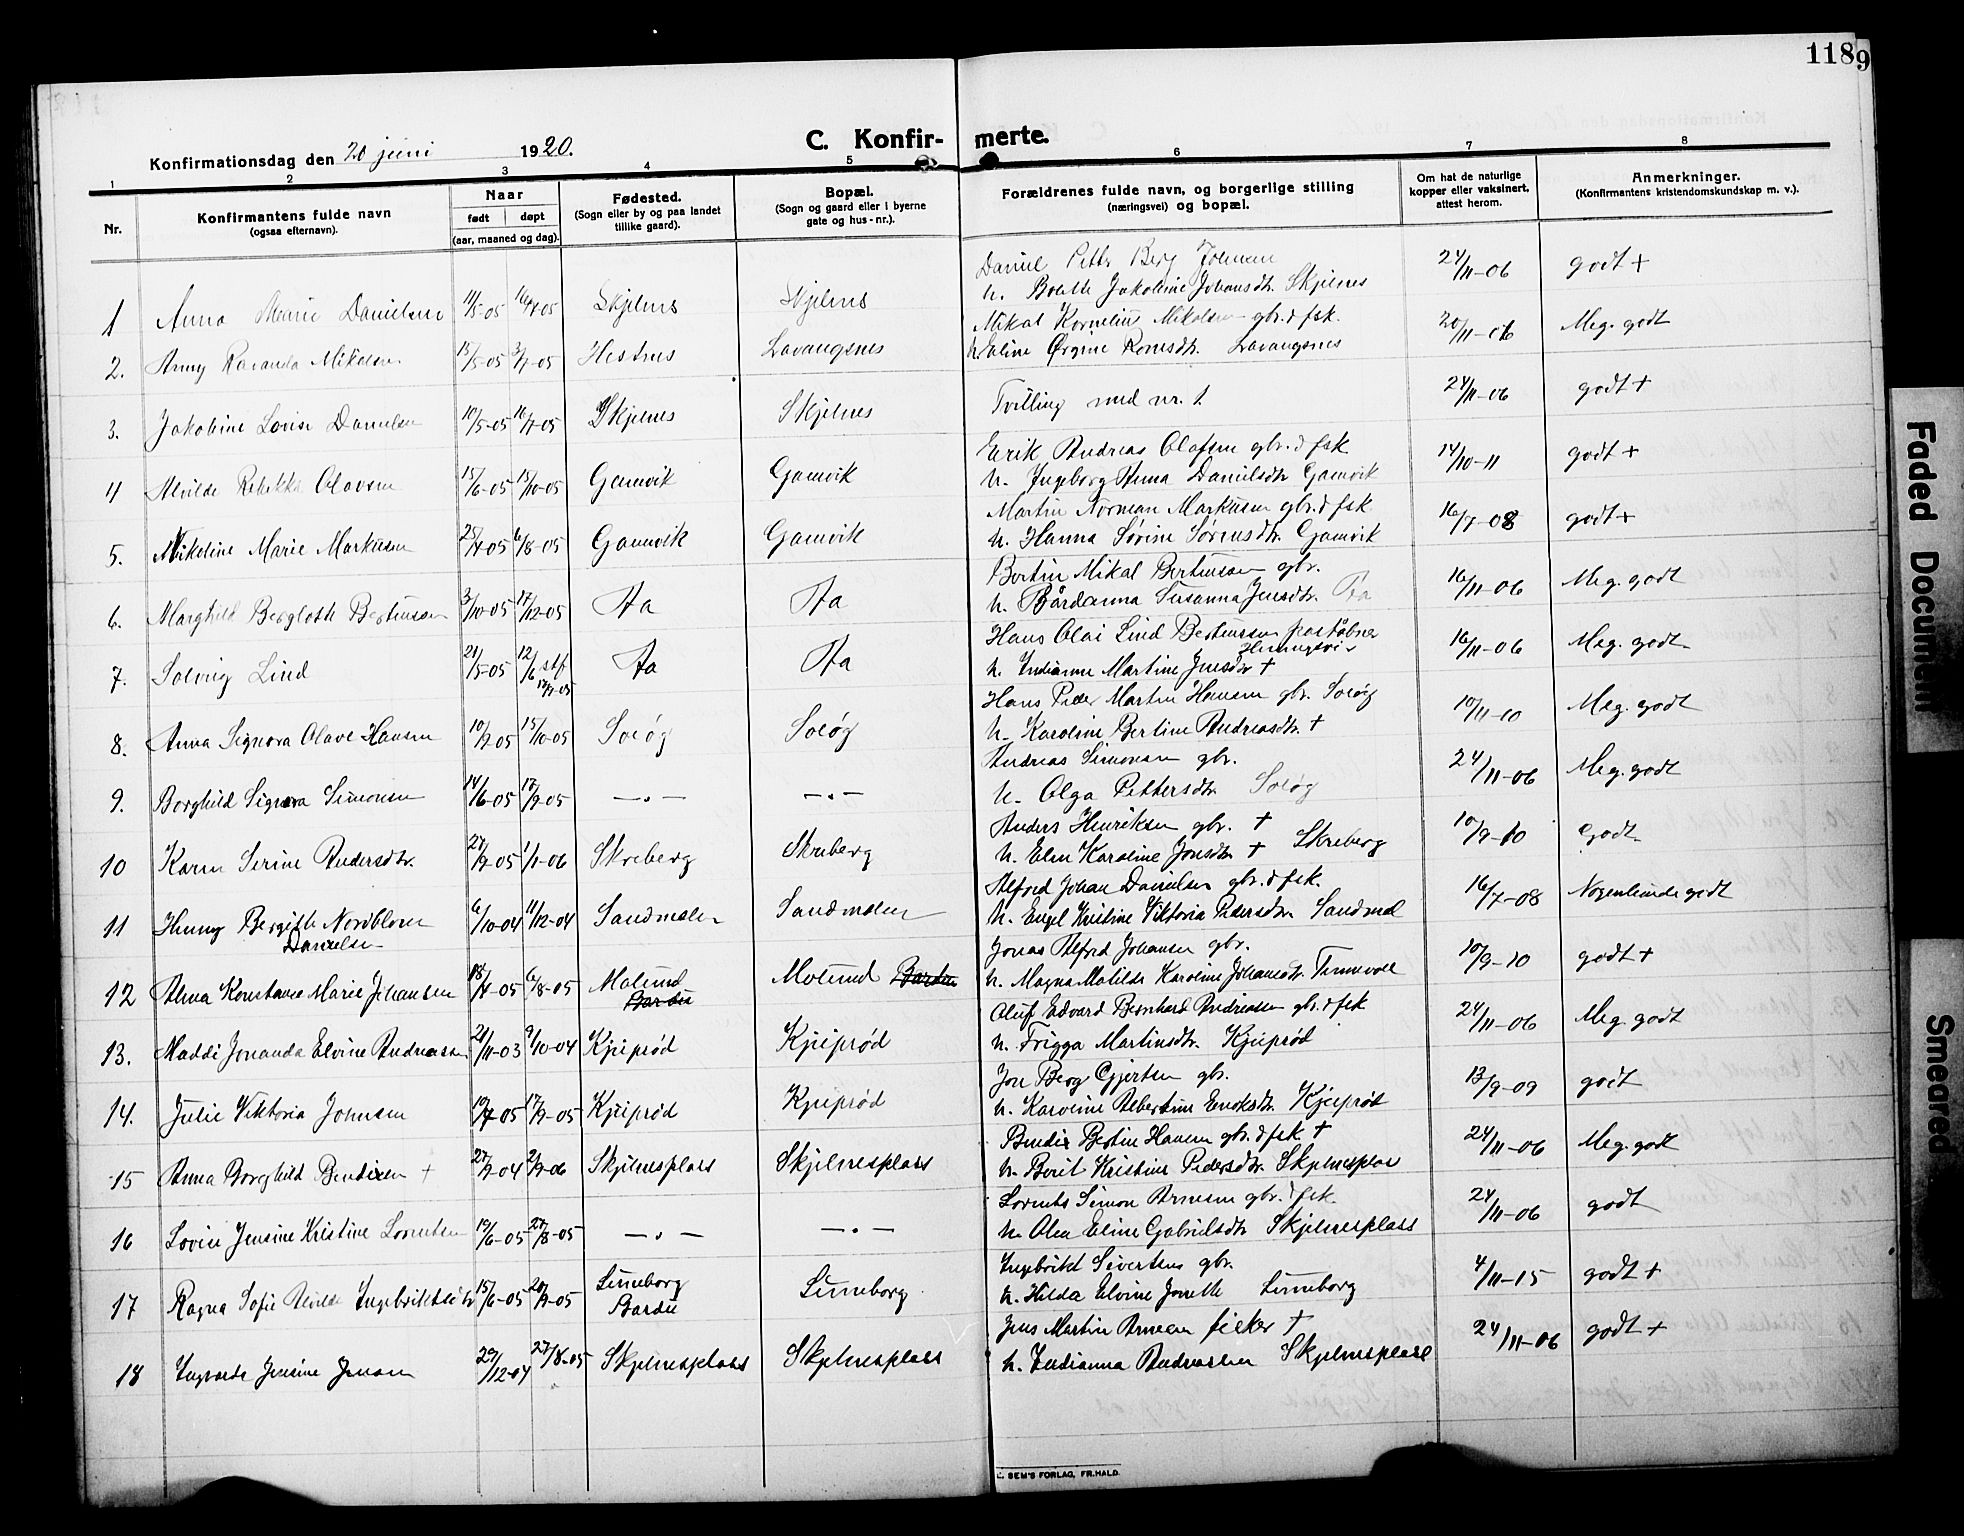 118
9
C. Konfir- merte.
Konfirmationsdag den 20 juni 1920.
1 2 3 4 5 6 7 8
Nr.
Konfirmantens fulde navn
(ogsaa efternavn).
Naar
født døpt
(aar, maaned og dag).
Fødested.
(Sogn eller by og paa landet
tillike gaard).
Bopæl.
(Sogn og gaard eller i byerne
gate og hus-nr.).
Forældrenes fulde navn, og borgerlige stilling
(næringsvei) og bopæl.
Om hat de naturlige
kopper eller vaksinert,
attest herom.
Anmerkninger.
(Konfirmantens kristendomskundskap m. v.).
Daniel Petter Berg Johnsen 24/11-06 godt +
1 Anna Marie Danielsen 10/5-05 16/7-05 Skjelnes Skjelnes h. Jakobine Johansdtr. Skjelnes
Mikal Kornelius Mikalsen gbr. & fsk. 20/11-06 Meg. godt
2. Anny Mikalsen 15/5-05 3/7-05 Hestnes Lavangsnes h. Eline Lavangsnes
3. Jakobine Lovise Danielsen 10/5-05 16/7-05 Skjelnes Skjelnes Tvilling med nr. 1. 24/11-06 godt +
Erik Andreas Olafsen gbr. & fsk 14/10-11 godt +
4 Alvilde Rebekka Olavsen 15/6-05 15/10-05 Gamvik Gamvik h. Ingeborg Anna Danielsdtr. Gamvik
Martin Norman Markusen gbr. & fsk. 16/7-08 godt +
5. Nikoline Marie Markusen 25/4-05 6/8-05 Gamvik Gamvik h. Hanna Sørine Sørensdtr. Gamvik
Bertin Mikal Bertinssen gbr. 16/11-06 Meg. godt
6. Marghild Bergloth Bertinssen 3/10-05 17/12-05 Aa Aa h. Bårdanna Susanna Jensdtr. Aa
Hans Olai Lind Bertinssen poståbner 16/11-06 Meg. godt
Henningsvær
7. Solvig Lind 21/5-05 12/6 stf Aa Aa h. Indianna Martine Jensdtr +
Hans Peder Martin Hansen gbr. Soløg 10/11-10 Meg. godt
8. Anna Signora Olave Hansen 10/7-05 15/10-05 Soløg Soløg h. Karoline Bertine Andreasdtr. +
Andreas Simonsen gbr. 24/11-06 Meg. godt
9. Borghild Signora Simonsen 14/6-05 17/9-05 -„- -„- h. Olga Pettersdtr. Soløg
Anders Henriksen gbr. + 10/9-10 Godt
10 Karen Serine Andersdtr. 27/9-05 1/1-06 Skreberg Skreberg h. Elen Karoline Jonsdtr + Skreberg
Alfred Johan Danielsen gbr. & fsk. 16/7-08 Nogenlunde godt
11 Henny Bergitte Nordblom 6/10-04 11/12-04 Sandmelen Sandmelen h. Engel Kristine Viktoria Pedersdtr. Sandmel
Danielsen
Jonas Alfred Johansen gbr. 10/9-10 godt +
12 Alma Konstance Marie Johansen 18/4-05 6/8-05 Molund Molund Bardu h. Magna Matilde Karoline Johansdtr. Tennevoll
Bardu
Oluf Edvard Bernhard Andreassen gbr. & fsk 24/11-06 Meg. godt
13. Maddi Jonanda Elvine Andreassen 21/11-03 9/10-04 Kjeiprød Kjeiprød h. Frigga Martinsdtr. Kjeiprød
Jon Berg Gjertsen gbr. 13/9-09 godt
14. Julie Viktoria Johnsen 19/7-05 17/9-05 Kjeiprød Kjeiprød h. Karoline Albertine Eriksdtr. Kjeiprød
Bendix Bertin Hansen gbr. & fsk + 24/11-06 Meg. godt
15 Anna Borghild Bendixen + 27/9-04 Skjelnesplass Skjelnesplass h. Berit Kristine Pedersdtr. Skjelnesplas
Lorents Simon Arnesen gbr. & fsk. 24/11-06 godt
16 Lovise Jensine Kristine Lorentsen 19/6-05 27/8-05 -„- -„- h. Eline Gabrielsdtr Skjelnesplass
Ingebrikt Sivertsen gbr. 4/11-15 godt +
17 Ragna Sofie Alvilde Ingebriktsdtr 15/6-05 20/9-05 Lüneborg Lüneborg h. Hilda Elvine Jonette Lüneborg
Bardu
Jens Martin Arnesen fisker + 24/11-06 godt +
18 Jensine Jensen 29/12-04 27/8-05 Skjelnesplass Skjelnesplass h. Indianna Andreassen Skjelnesplass
E. SEM'S FORLAG, FR.HALD.
Faded Document
Smeared